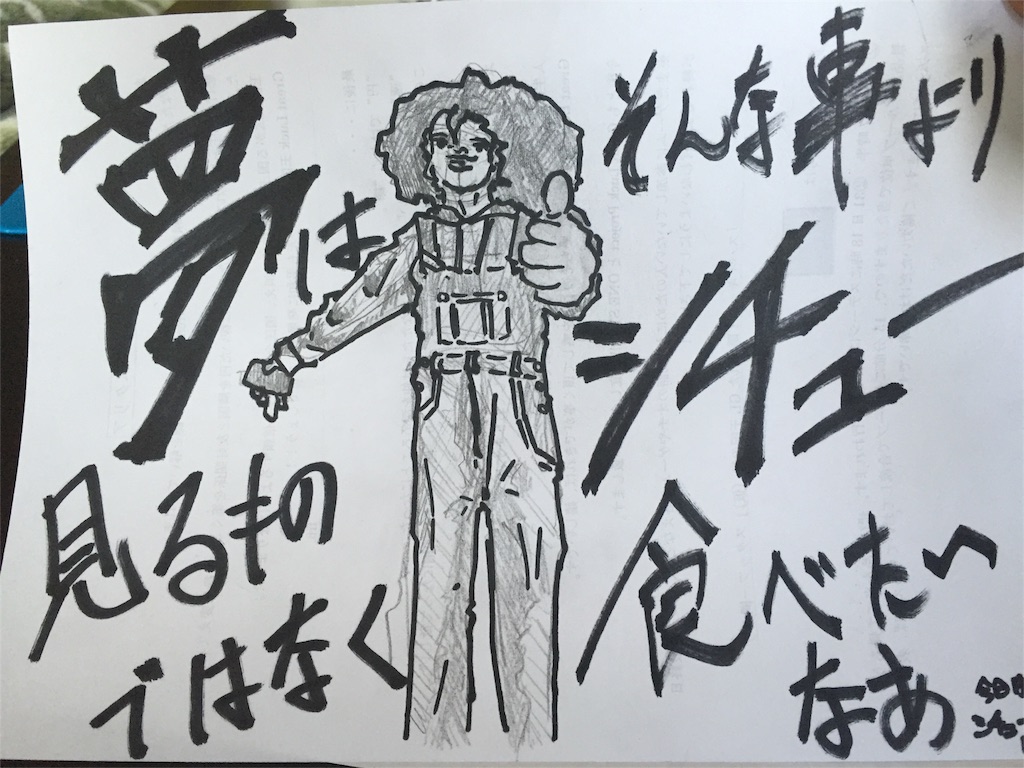 夢は
見るもの
ではなく
そんな車より
シチュー
食べたい
なあ